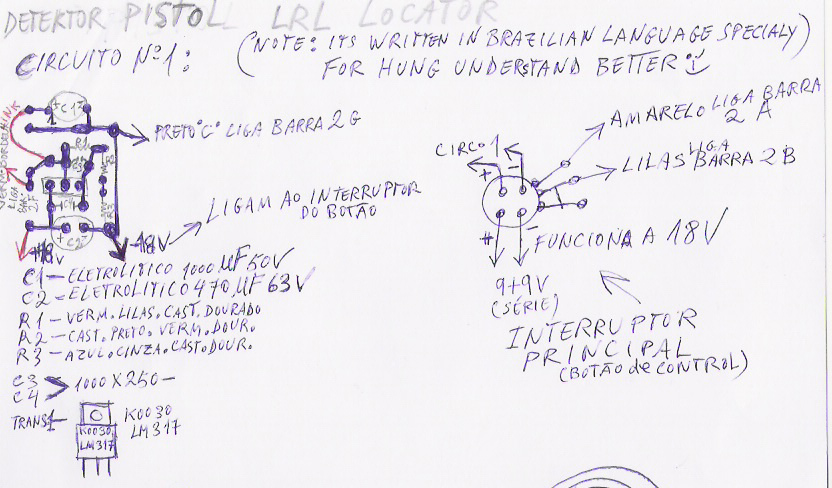 DETEKTOR PISTOL LRL LOCATOR
CIRCUITO Nº1:
(NOTE: ITS WRITTEN IN BRAZILIAN LANGUAGE SPECIALY)
FOR HUNG UNDERSTAND BETTER :)
C1
PRETO "C" LIGA BARRA 2G
R1
C2
-18V
LIGAM AO INTERRUPTOR
DO BOTÃO
C1 - ELETROLITICO 1000 µF 50V
C2 - ELETROLITICO 470 µF 63V
R1 - VERM. LILAS. CAST. DOURADO
R2 - CAST. PRETO. VERM. DOUR.
R3 - AZUL. CINZA. CAST. DOUR.
C3
C4 > 1000 X 250 -
TRANS1 -
K0030
LM317
K0030
LM317
CIRCO 1
+ -
AMARELO LIGA BARRA
2 A
LILAS LIGA BARRA 2B
+ -
FUNCIONA A 18V
9+9V
(SÉRIE)
INTERRUPTOR
PRINCIPAL
(BOTÃO de CONTROL)